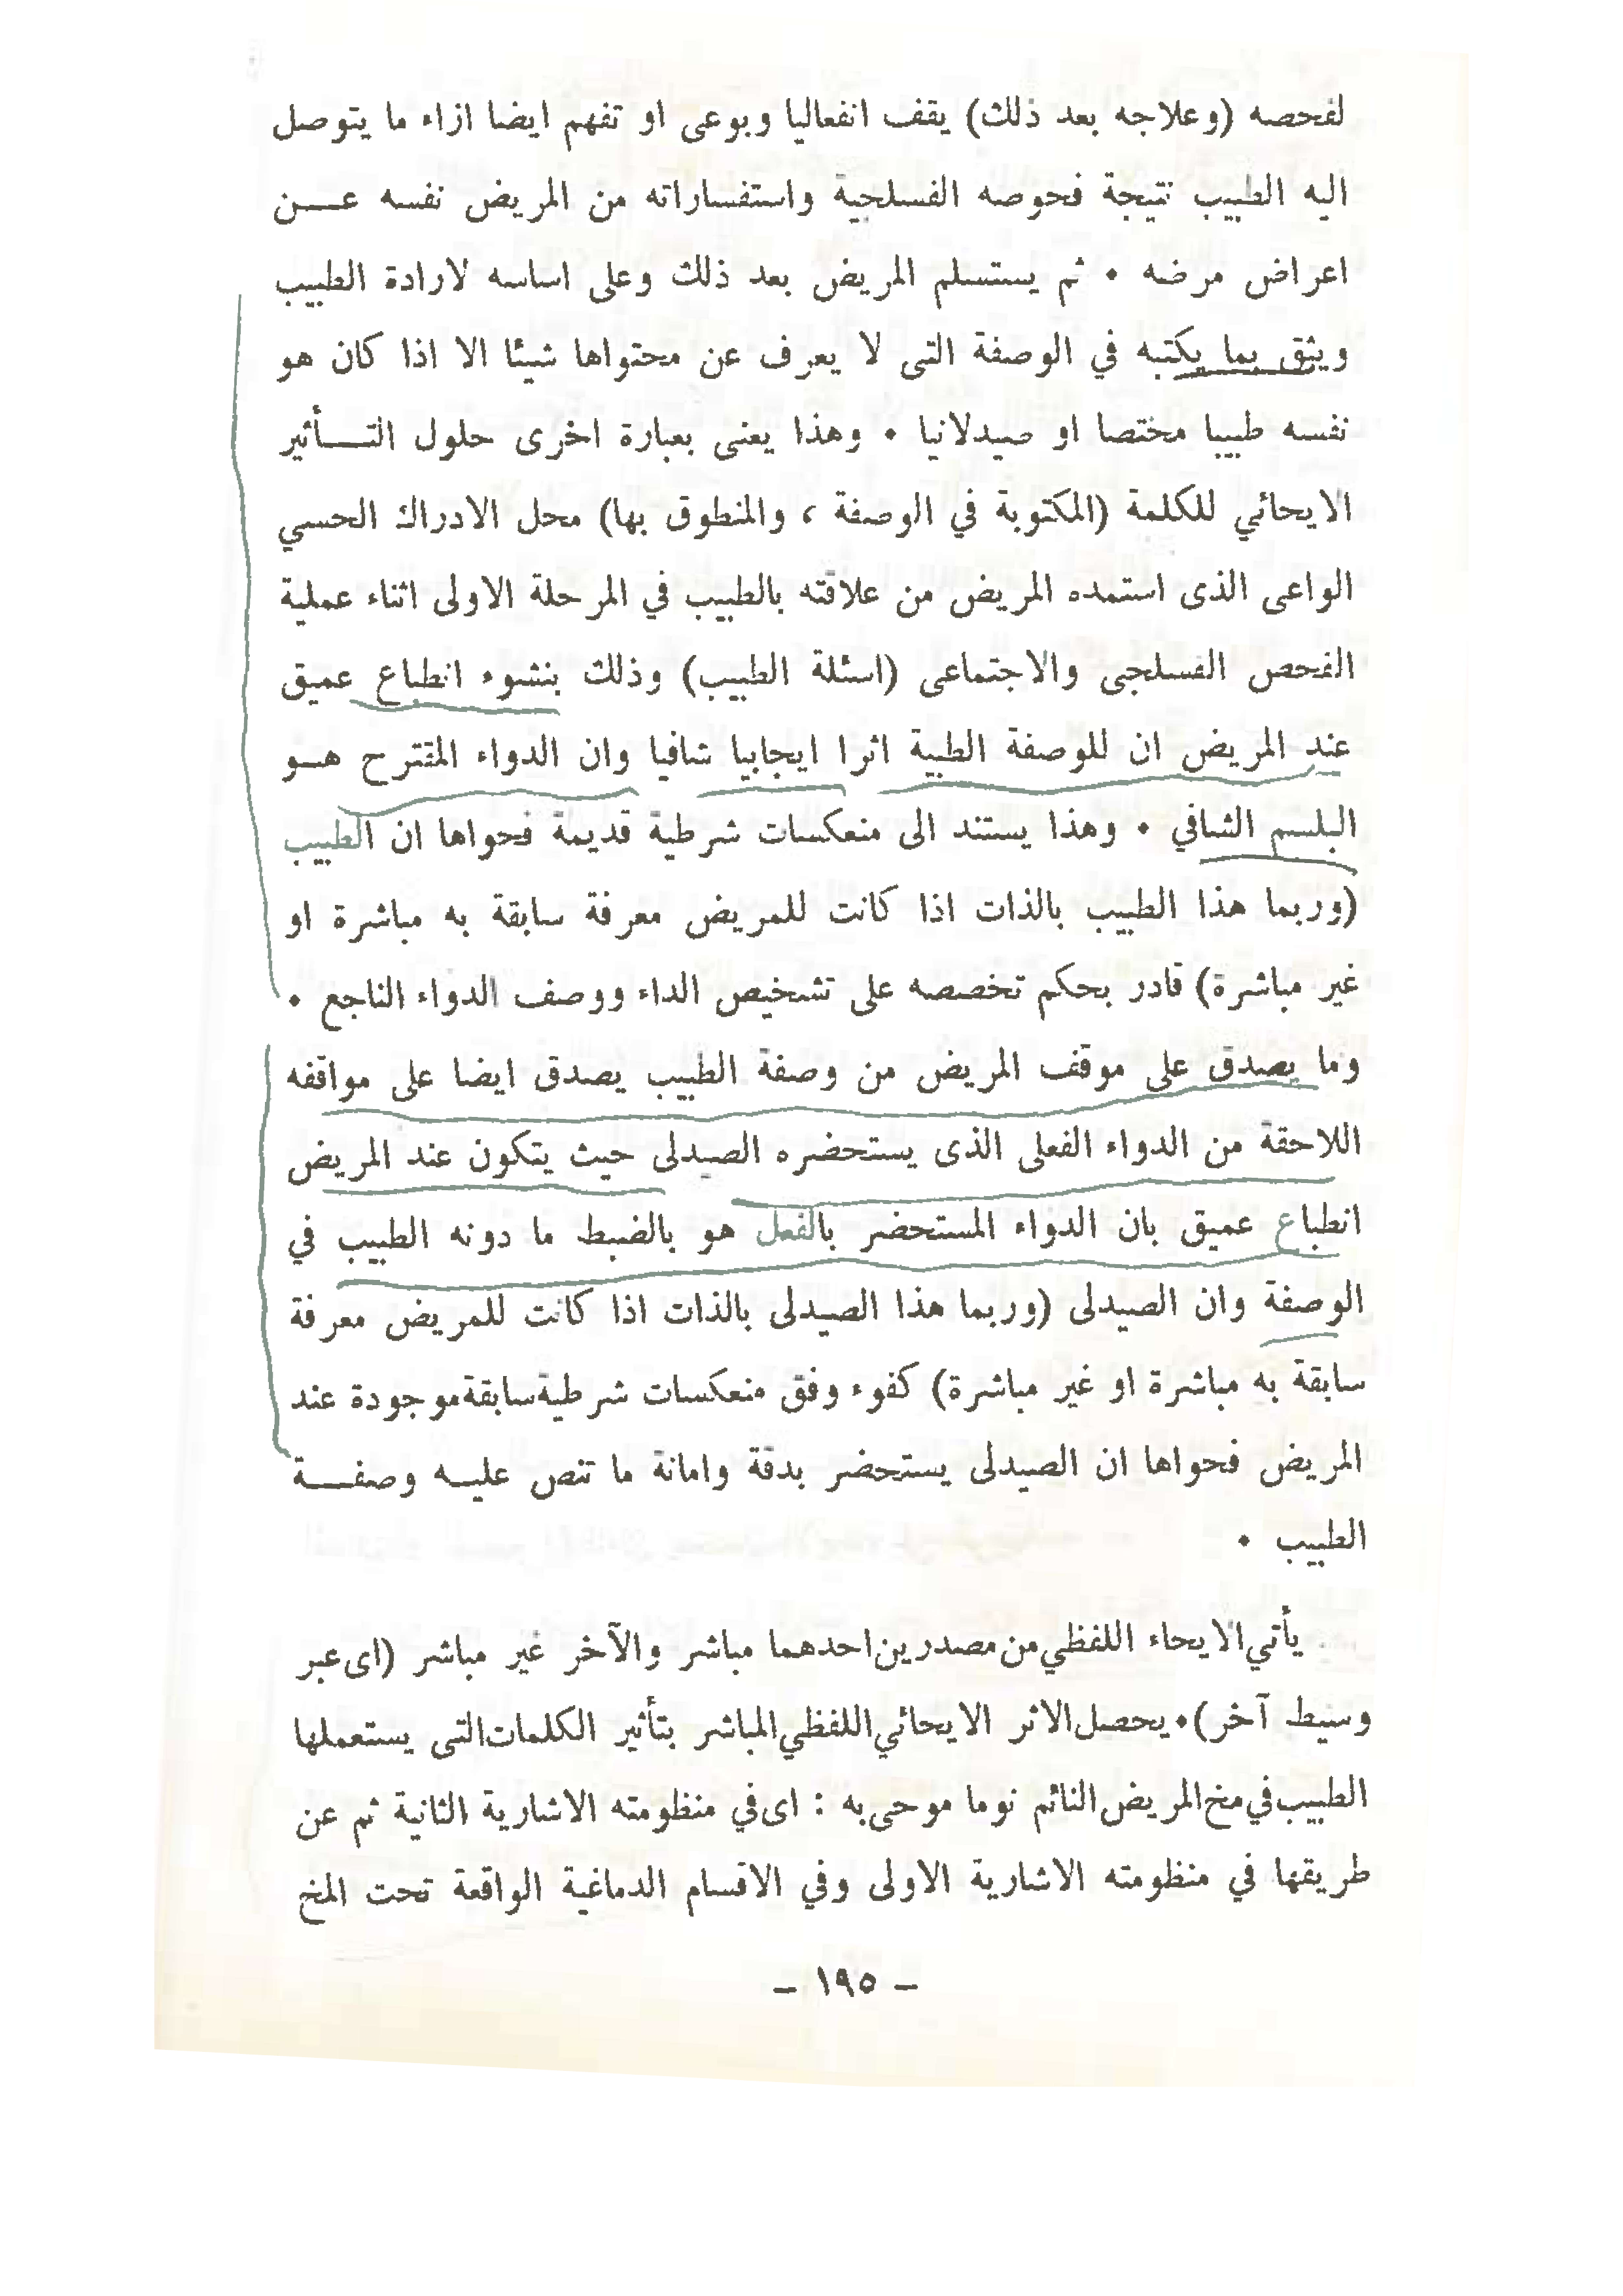 لفحصه (وعلاجه بعد ذلك) يقف انفعاليا وبوعى او تفهم ايضا ازاء ما يتوصل
اليه الطبيب نتيجة فحوصه الفسلجية واستفساراته من المريض نفسه عــن
اعراض مرضه . ثم يستسلم المريض بعد ذلك وعلى اساسه لارادة الطبيب
ويثق بما يكتبه في الوصفة التى لا يعرف عن محتواها شيئا الا اذا كان هو
نفسه طبيبا مختصا او صيدلانيا . وهذا يعنى بعبارة اخرى حلول التــأثير
الايحائي للكلمة (المكتوبة في الوصفة ، والمنطوق بها) محل الادراك الحسي
الواعى الذى استمده المريض من علاقته بالطبيب في المرحلة الاولى اثناء عملية
الفحص الفسلجى والاجتماعى (اسئلة الطبيب) وذلك بنشوء انطباع عميق
عند المريض ان للوصفة الطبية اثرا ايجابيا شافيا وان الدواء المقترح هــو
البلسم الشافي . وهذا يستند الى منعكسات شرطية قديمة فحواها ان الطبيب
(وربما هذا الطبيب بالذات اذا كانت للمريض معرفة سابقة به مباشرة او
غير مباشرة) قادر بحكم تخصصه على تشخيص الداء ووصف الدواء الناجع .
وما يصدق على موقف المريض من وصفة الطبيب يصدق ايضا على مواقفه
اللاحقة من الدواء الفعلى الذى يستحضره الصيدلى حيث يتكون عند المريض
انطباع عميق بان الدواء المستحضر بالفعل هو بالضبط ما دونه الطبيب في
الوصفة وان الصيدلى (وربما هذا الصيدلى بالذات اذا كانت للمريض معرفة
سابقة به مباشرة او غير مباشرة) كفوء وفق منعكسات شرطية سابقة موجودة عند
المريض فحواها ان الصيدلى يستحضر بدقة وامانة ما تنص عليــه وصفــة
الطبيب .
يأتي الايحاء اللفظي من مصدرين احدهما مباشر والآخر غير مباشر (اى عبر
وسيط آخر). يحصل الاثر الايحائي اللفظي المباشر بتأثير الكلمات التى يستعملها
الطبيب في مخ المريض النائم نوما موحى به : اى في منظومته الاشارية الثانية ثم عن
طريقها في منظومته الاشارية الاولى وفي الاقسام الدماغية الواقعة تحت المخ
– ١٩٥ –